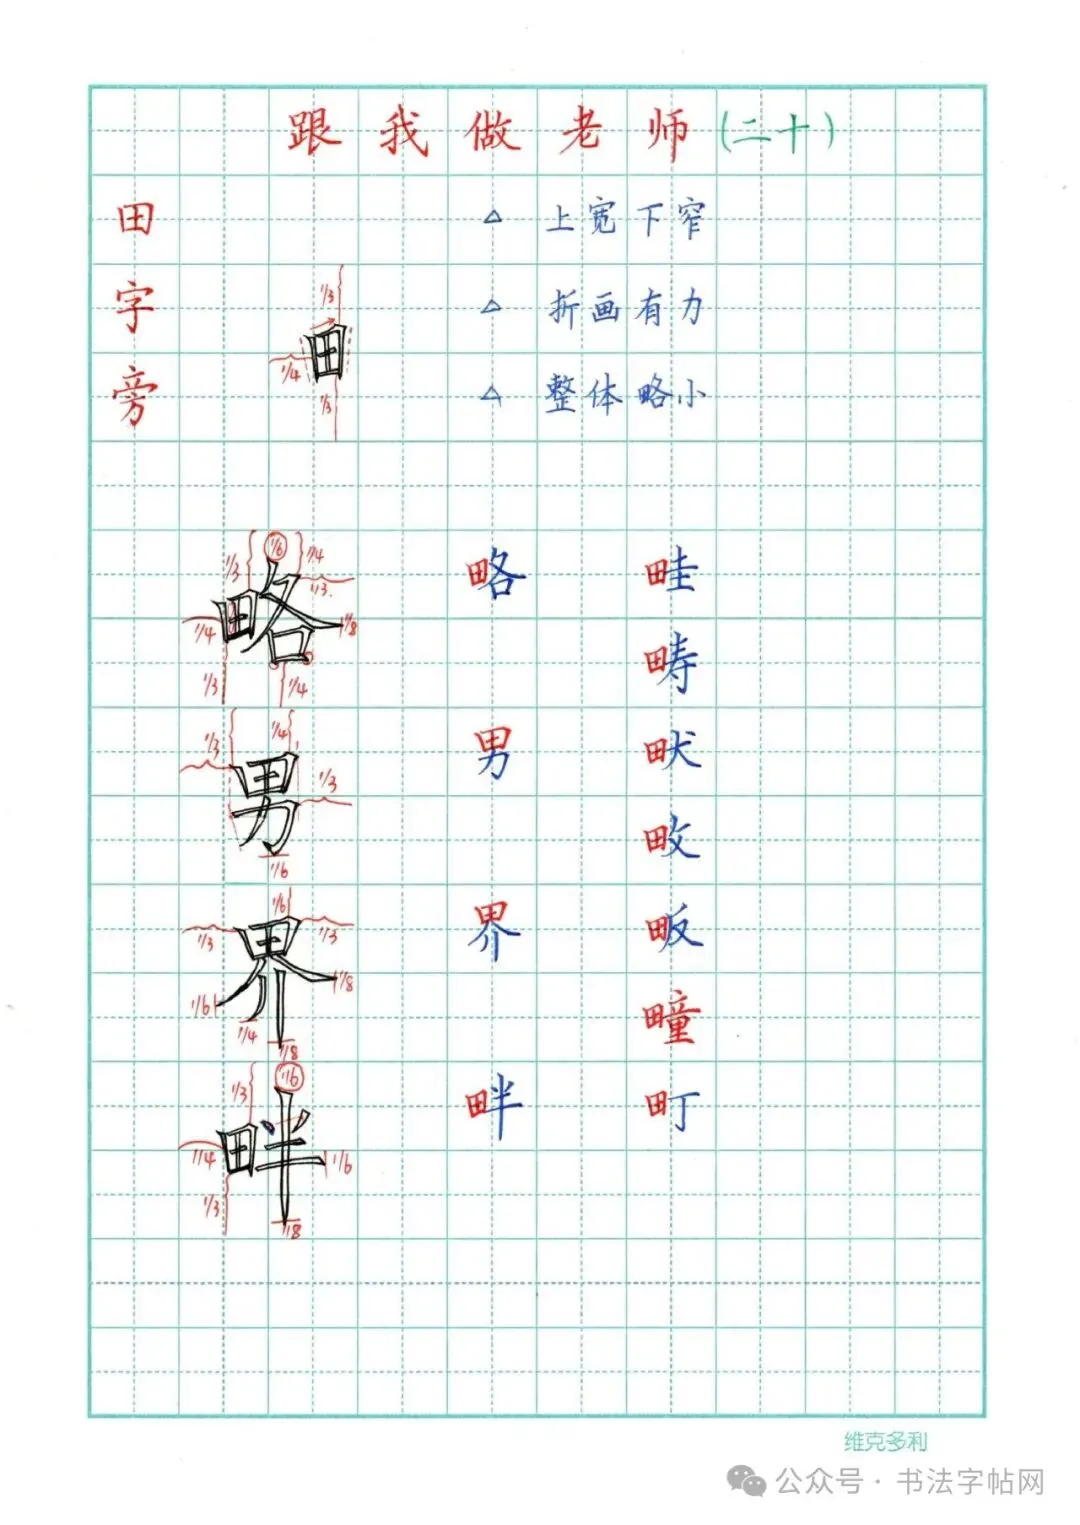 跟我做老师(二十)
田字旁
△ 上宽下窄
△ 折画有力
△ 整体略小
1/3
田
1/4
1/3
1/3 1/6 1/4
1/3
略 略 畦
1/4 1/8
1/3 1/4
畴
1/3 1/4
男 男 畎
1/3
畋
1/6
1/6
1/3 1/3
界 界 畈
1/8
1/6 1/4
1/8
疃
1/3 1/6
畔 畔 町
1/4 1/6
1/3
1/8
维克多利
公众号·书法字帖网